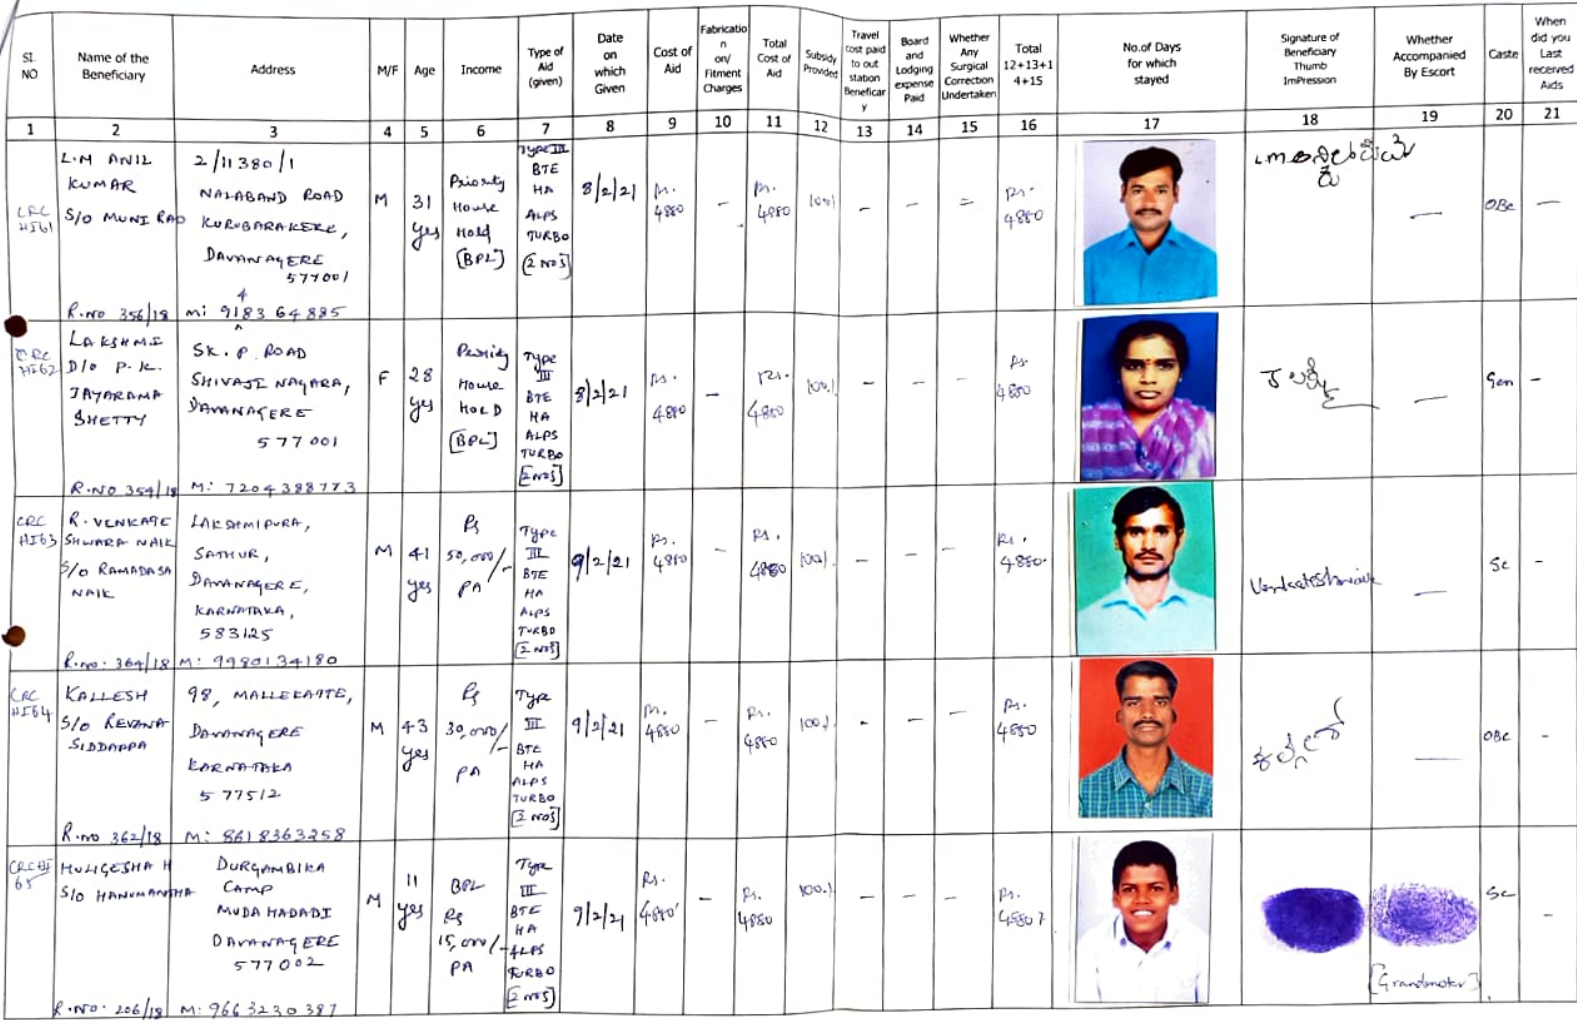 SI. NO
Name of the Beneficiary
Address
M/F
Age
Income
Type of Aid (given)
Date on which Given
Cost of Aid
Fabricatio n on/ Fitment Charges
Total Cost of Aid
Subsidy Provided
Travel cost paid to out station Beneficar y
Board and Lodging expense Paid
Whether Any Surgical Correction Undertaken
Total 12+13+1 4+15
No.of Days for which stayed
Signature of Beneficiary Thumb ImPression
Whether Accompanied By Escort
Caste
When did you Last received Aids
1 2 3 4 5 6 7 8 9 10 11 12 13 14 15 16 17 18 19 20 21
CRC HI61
L.M ANIL
KUMAR
S/O MUNI RAO
R.NO 356/18
2/11380/1
NALABAND ROAD
KURUBARAKERE,
DAVANAGERE
577001
M
31
yes
Priority
House
Hold
[BPL]
Type III
BTE
HA
ALPS
TURBO
[2 NOS]
8/2/21
Rs.
4880
-
Rs.
4880
100%
-
-
-
Rs.
4880
-
OBC
-
CRC HI62
LAKSHMI
D/o P.K.
JAYARAMA
SHETTY
R.NO 354/18
SK. P. ROAD
SHIVAJI NAGARA,
DAVANAGERE
577001
M: 7204388773
F
28
yes
House
HOLD
[BPL]
Type
III
BTE
HA
ALPS
TURBO
[2 NOS]
8/2/21
Rs.
4880
-
Rs.
4880
100%
-
-
-
Rs.
4880
-
Gen
-
CRC HI63
R. VENKATE
SHWARA NAIK
S/o RAMADASA
NAIK
R.NO: 364/18
LAKSHMIPURA,
SATHUR,
DAVANAGERE,
KARNATAKA,
583125
M: 9980134180
M
41
yes
Rs
50,000/-
PA
Type
III
BTE
HA
ALPS
TURBO
[2 NOS]
9/2/21
Rs.
4880
-
Rs.
4880
100%
-
-
-
Rs.
4880.
-
SC
-
CRC HI64
KALLESH
S/o REVANA
SIDDAPPA
R.NO 362/18
98, MALLEKATTE,
DAVANAGERE
KARNATAKA
577512
M: 8618363258
M
43
yes
Rs
30,000/-
PA
Type
III
BTE
HA
ALPS
TURBO
[2 NOS]
9/2/21
Rs.
4880
-
Rs.
4880
100%
-
-
-
Rs.
4880
ಕಲ್ಲೇಶ್
-
OBC
-
CRC HI 65
HULIGESHA H
S/O HANUMANTHA
R.NO: 206/18
DURGAMBIKA
CAMP
MUDAHADADI
DAVANAGERE
577002
M: 9663230387
M
11
yes
BPL
Rs
15,000/-
PA
Type
III
BTE
HA
ALPS
TURBO
[2 NOS]
9/2/21
Rs.
4880
-
Rs.
4880
100%
-
-
-
Rs.
[Grandmother]
SC
-